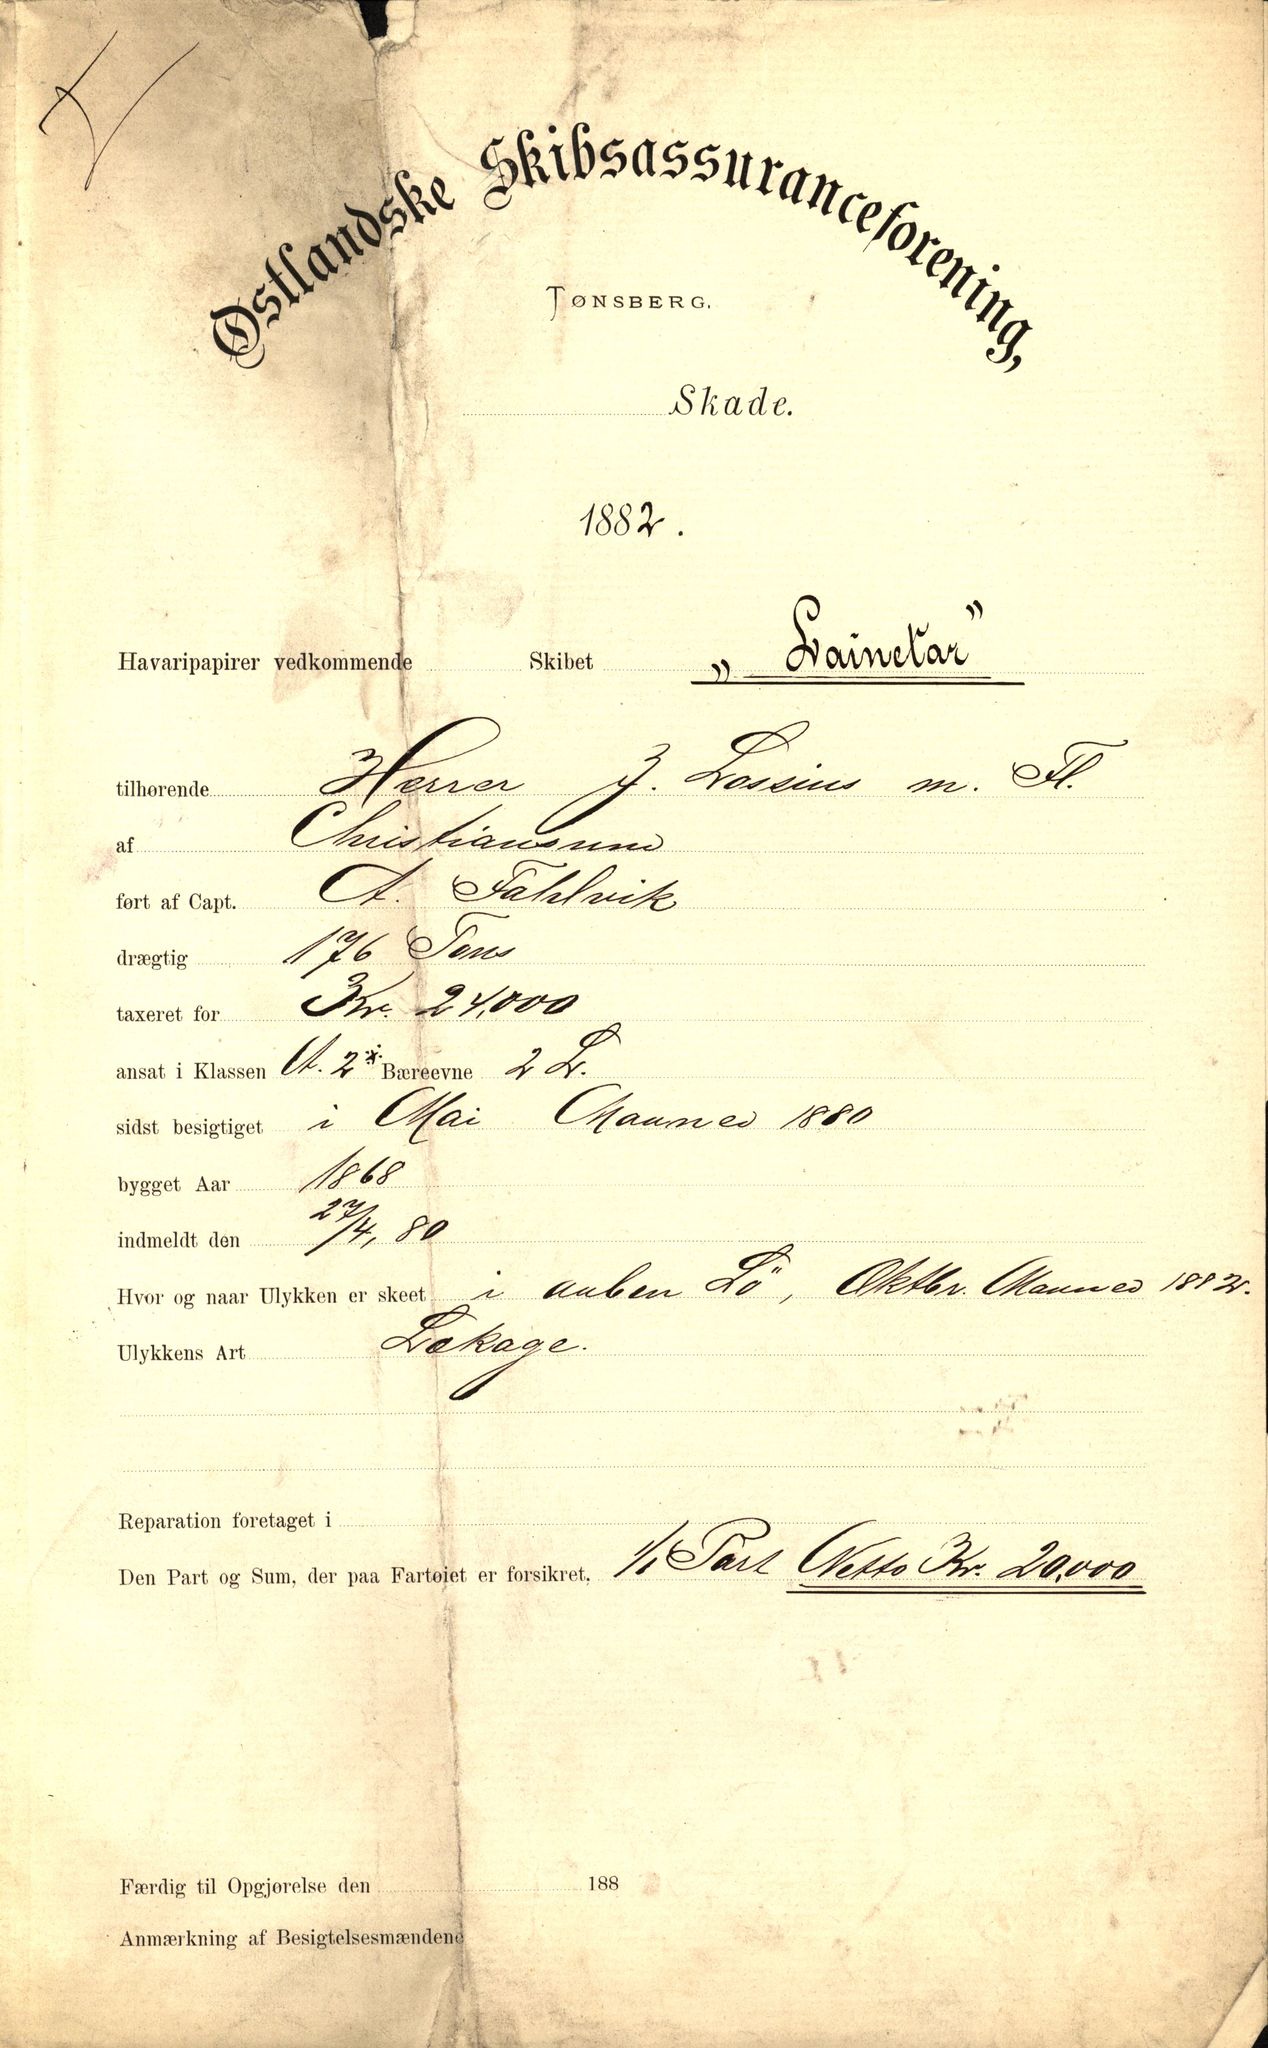 Østlandske Skibsassuranceforening,
TØNSBERG.
Skade.
1882.
Havaripapirer vedkommende Skibet „Lainetar”
tilhørende Herrer J. Lossius m. Fl.
af Christianssund
ført af Capt. A. Fahlvik
drægtig 176 Tons
taxeret for Kr. 24,000
ansat i Klassen A. 2* Bæreevne 2 L.
sidst besigtiget i Mai Maaned 1880
bygget Aar 1868
indmeldt den 27/4, 80
Hvor og naar Ulykken er skeet i aaben Sö, Oktbr. Maaned 1882.
Ulykkens Art Lækage.
Reparation foretaget i
Den Part og Sum, der paa Fartøiet er forsikret, 1/1 Part Netto Kr. 20,000
Færdig til Opgjørelse den 188
Anmærkning af Besigtelsesmændene